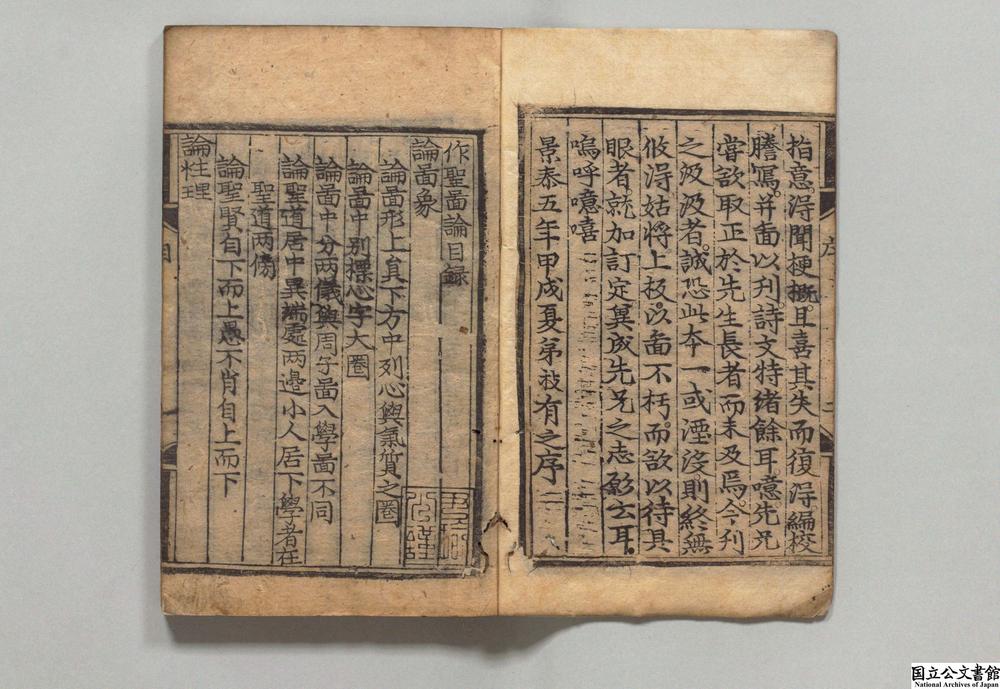 指意。淂聞梗槪。且喜其失而復淂編挍
謄寫。并啚以刋。詩文特緒餘耳。噫。先兄
嘗欲取正於先生長者而未及焉。今刋
之汲汲者。誠恐此本一或湮沒則終無
攸淂。姑將上板。以啚不朽。而欲以待具
眼者就加訂定兾成先兄之志
云耳
嗚呼噫嘻
景泰五年甲戌夏弟枝有之序
序
作聖啚論目録
論啚象
論啚形上真下方中列心與氣質之圈
論啚中別摽心字大圈
論啚中分兩儀與周子啚入學啚不同
論聖道居中異端處两邉小人居下學者在
聖道两傍
論聖賢自下而上愚不肖自上而下
論性理
目
国立公文書館
National Archives of Japan